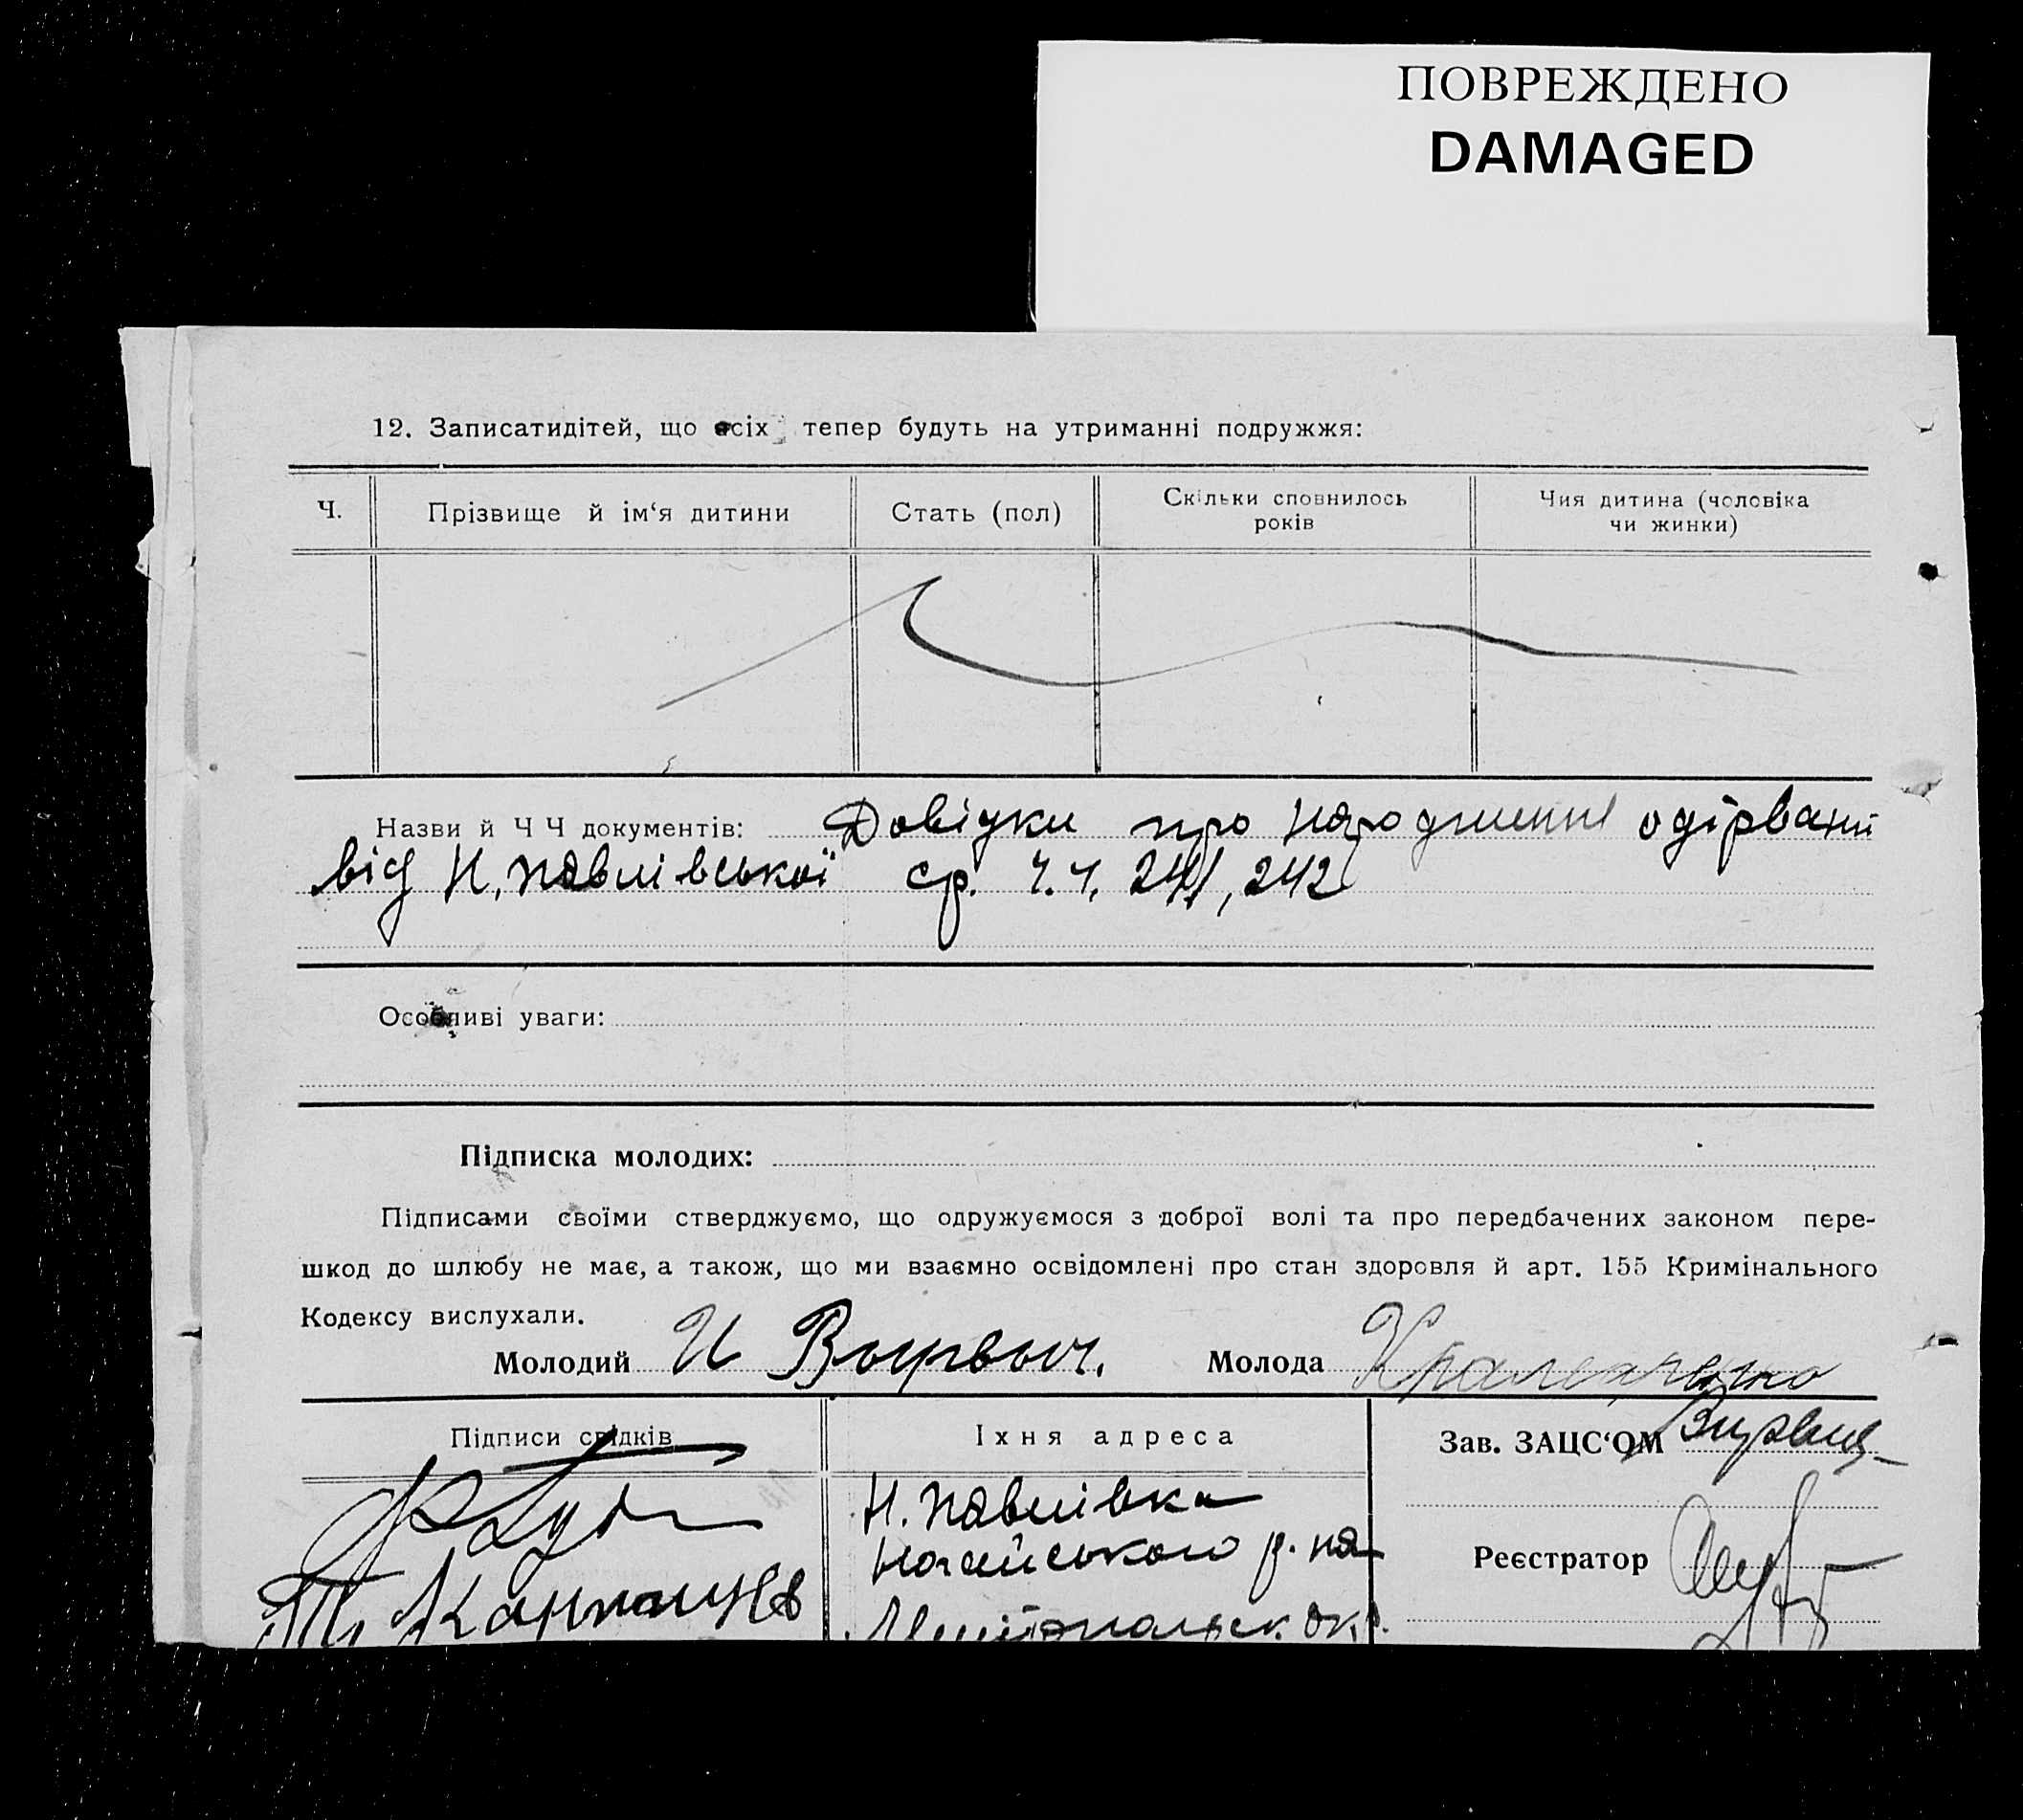 ПОВРЕЖДЕНО
DAMAGED
12. Записатидітей, що всіх тепер будуть на утриманні подружжя:
Ч.
Прізвище й ім‘я дитини
Стать (пол)
Скільки сповнилось
років
Чия дитина (чоловіка
чи жинки)
Назви й Ч Ч документів: Довідки про народження одірвані
від Н. Павлівської ср. ч.ч. 241, 242
Особливі уваги:
Підписка молодих:
Підписами своїми стверджуємо, що одружуємося з доброї волі та про передбачених законом пере-
шкод до шлюбу не має, а також, що ми взаємно освідомлені про стан здоровля й арт. 155 Кримінального
Кодексу вислухали.
Молодий И
Молода
Підписи свідків
Їхня адреса
Зав. ЗАЦС‘ОМ
Н. Павлівка
Ногайського р. на
Мелітопольск. окр.
Реєстратор